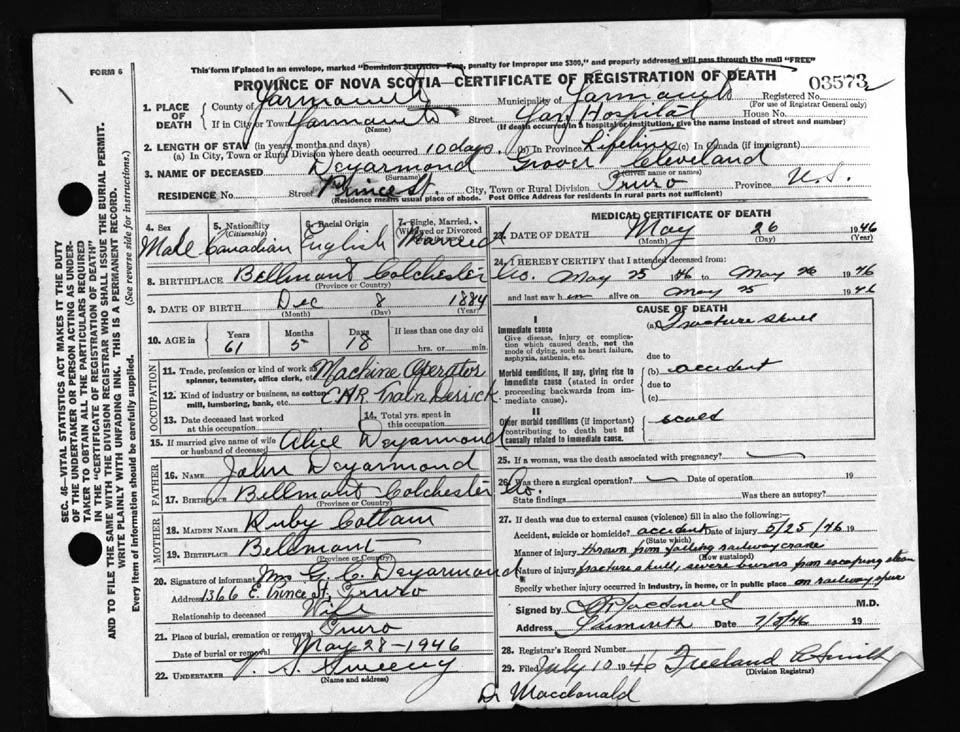 This form if placed in an envelope, marked "Dominion Statistics—Free, penalty for improper use $300," and properly addressed will pass through the mail "FREE"
FORM 6
PROVINCE OF NOVA SCOTIA—CERTIFICATE OF REGISTRATION OF DEATH
03573
1. PLACE OF DEATH County of Yarmouth Municipality of Yarmouth Registered No. (For use of Registrar General only)
If in City or Town Yarmouth (Name) Street Yar Hospital House No.
(If death occurred in a hospital or institution, give the name instead of street and number)
2. LENGTH OF STAY (in years, months and days)
(a) In City, Town or Rural Division where death occurred 10 days (b) In Province Lifetime (c) In Canada (if immigrant)
3. NAME OF DECEASED Deyarmond Grover Cleveland
(Surname) (Given name or names)
RESIDENCE No. Street Prince St. City, Town or Rural Division Truro Province N.S.
(Residence means usual place of abode. Post Office Address for residents in rural parts not sufficient)
4. Sex Male
5. Nationality (Citizenship) Canadian
6. Racial Origin English
7. Single, Married, Widowed or Divorced Married
8. BIRTHPLACE Bellmont Colchester Co.
(Province or Country)
9. DATE OF BIRTH Dec 8 1884
(Month) (Day) (Year)
10. AGE in Years 61 Months 5 Days 18 If less than one day old hrs. or min.
OCCUPATION
11. Trade, profession or kind of work as spinner, teamster, office clerk, etc. Machine Operator
12. Kind of industry or business, as cotton mill, lumbering, bank, etc. CNR Train Derrick
13. Date deceased last worked at this occupation
14. Total yrs. spent in this occupation
15. If married give name of wife or husband of deceased Alice Deyarmond
FATHER
16. Name John Deyarmond
17. Birthplace Bellmont Colchester Co.
(Province or Country)
MOTHER
18. MAIDEN NAME Ruby Cottam
19. BIRTHPLACE Belmont
(Province or Country)
20. Signature of informant Mrs G. C. Deyarmond
Address 1366 E. Prince St, Truro
Relationship to deceased Wife
21. Place of burial, cremation or removal Truro
Date of burial or removal May 28-1946
22. UNDERTAKER V. S. Sweeny
(Name and address)
MEDICAL CERTIFICATE OF DEATH
23. DATE OF DEATH May 26 1946
(Month) (Day) (Year)
24. I HEREBY CERTIFY that I attended deceased from:
May 25 1946 to May 26 1946
and last saw him alive on May 25 1946
CAUSE OF DEATH
I
Immediate cause (a) Fracture skull
Give disease, injury or complication which caused death, not the mode of dying, such as heart failure, asphyxia, asthenia, etc.
due to
Morbid conditions, if any, giving rise to immediate cause (stated in order proceeding backwards from immediate cause). (b) accident
due to
(c)
II
Other morbid conditions (if important) contributing to death but not causally related to immediate cause. scald
25. If a woman, was the death associated with pregnancy?
26. Was there a surgical operation? Date of operation 19
State findings Was there an autopsy?
27. If death was due to external causes (violence) fill in also the following:—
Accident, suicide or homicide? accident Date of injury 5/25/46 19
(State which)
Manner of injury thrown from falling railway crane
(How sustained)
Nature of injury fracture skull, severe burns from escaping steam
Specify whether injury occurred in industry, in home, or in public place on railway spur
Signed by Macdonald M.D.
Address Date 7/5/46 19
28. Registrar's Record Number
29. Filed July 10 1946 Freeland
(Division Registrar)
Dr Macdonald
SEC. 46—VITAL STATISTICS ACT MAKES IT THE DUTY OF THE UNDERTAKER OR PERSON ACTING AS UNDERTAKER TO OBTAIN ALL THE PARTICULARS REQUIRED IN THE "CERTIFICATE OF REGISTRATION OF DEATH" AND TO FILE THE SAME WITH THE DIVISION REGISTRAR WHO SHALL ISSUE THE BURIAL PERMIT.
WRITE PLAINLY WITH UNFADING INK. THIS IS A PERMANENT RECORD.
Every item of information should be carefully supplied. (See reverse side for instructions.)